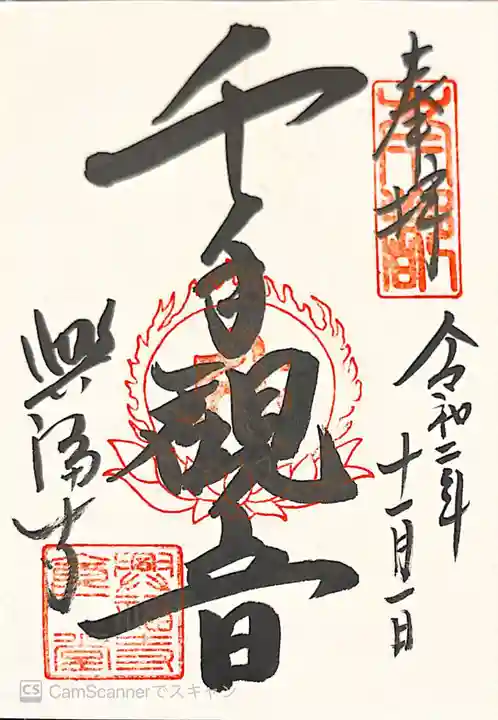 奉拝
令和二年
十一月一日
千手観音
興福寺
CS CamScannerでスキャン